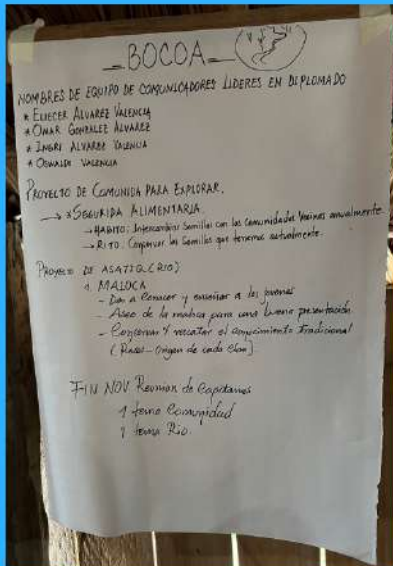 BOCOA
NOMBRES DE EQUIPO DE COMUNICADORES LIDERES EN DIPLOMADO
* ELIECER ALVAREZ VALENCIA
* OMAR GONZALEZ ALVAREZ
* INGRI ALVAREZ VALENCIA
* OSWALDO VALENCIA
PROYECTO DE COMUNIDA PARA EXPLORAR.
→ * SEGURIDA ALIMENTARIA.
→ HABITO: Intercambiar Semillas con las Comunidades Vecinas anualmente.
→ RITO: Conservar las Semillas que tenemos actualmente.
PROYECTO DE ASATIQ (RIO)
1. MALOCA
- Dar a Conocer y enseñar a los jovenes
- Aseo de la maloca para una buena presentación
- Conservar Y rescatar el conocimiento Tradicional
( - Origen de cada Clan)
FIN NOV Reunion de Capitanes
1 tema Comunidad
1 tema Rio.